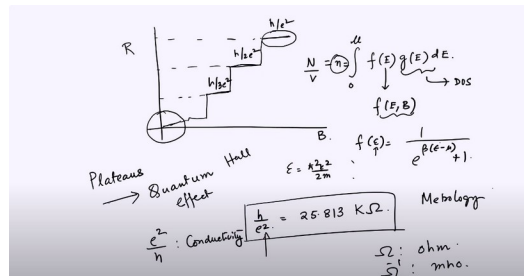 R
h/e²
h/2e²
h/3e²
B.
N/V = n = ∫₀^μ f(E) g(E) dE.
→ DOS
f(E, B)
f(ε) = 1 / e^β(ε-μ) + 1.
ε = ħ²k²/2m :
Plateaus
→ Quantum Hall
effect
e²/h : Conductivity
h/e² = 25.813 KΩ.
Metrology
Ω : ohm.
Ω⁻¹ : mho.